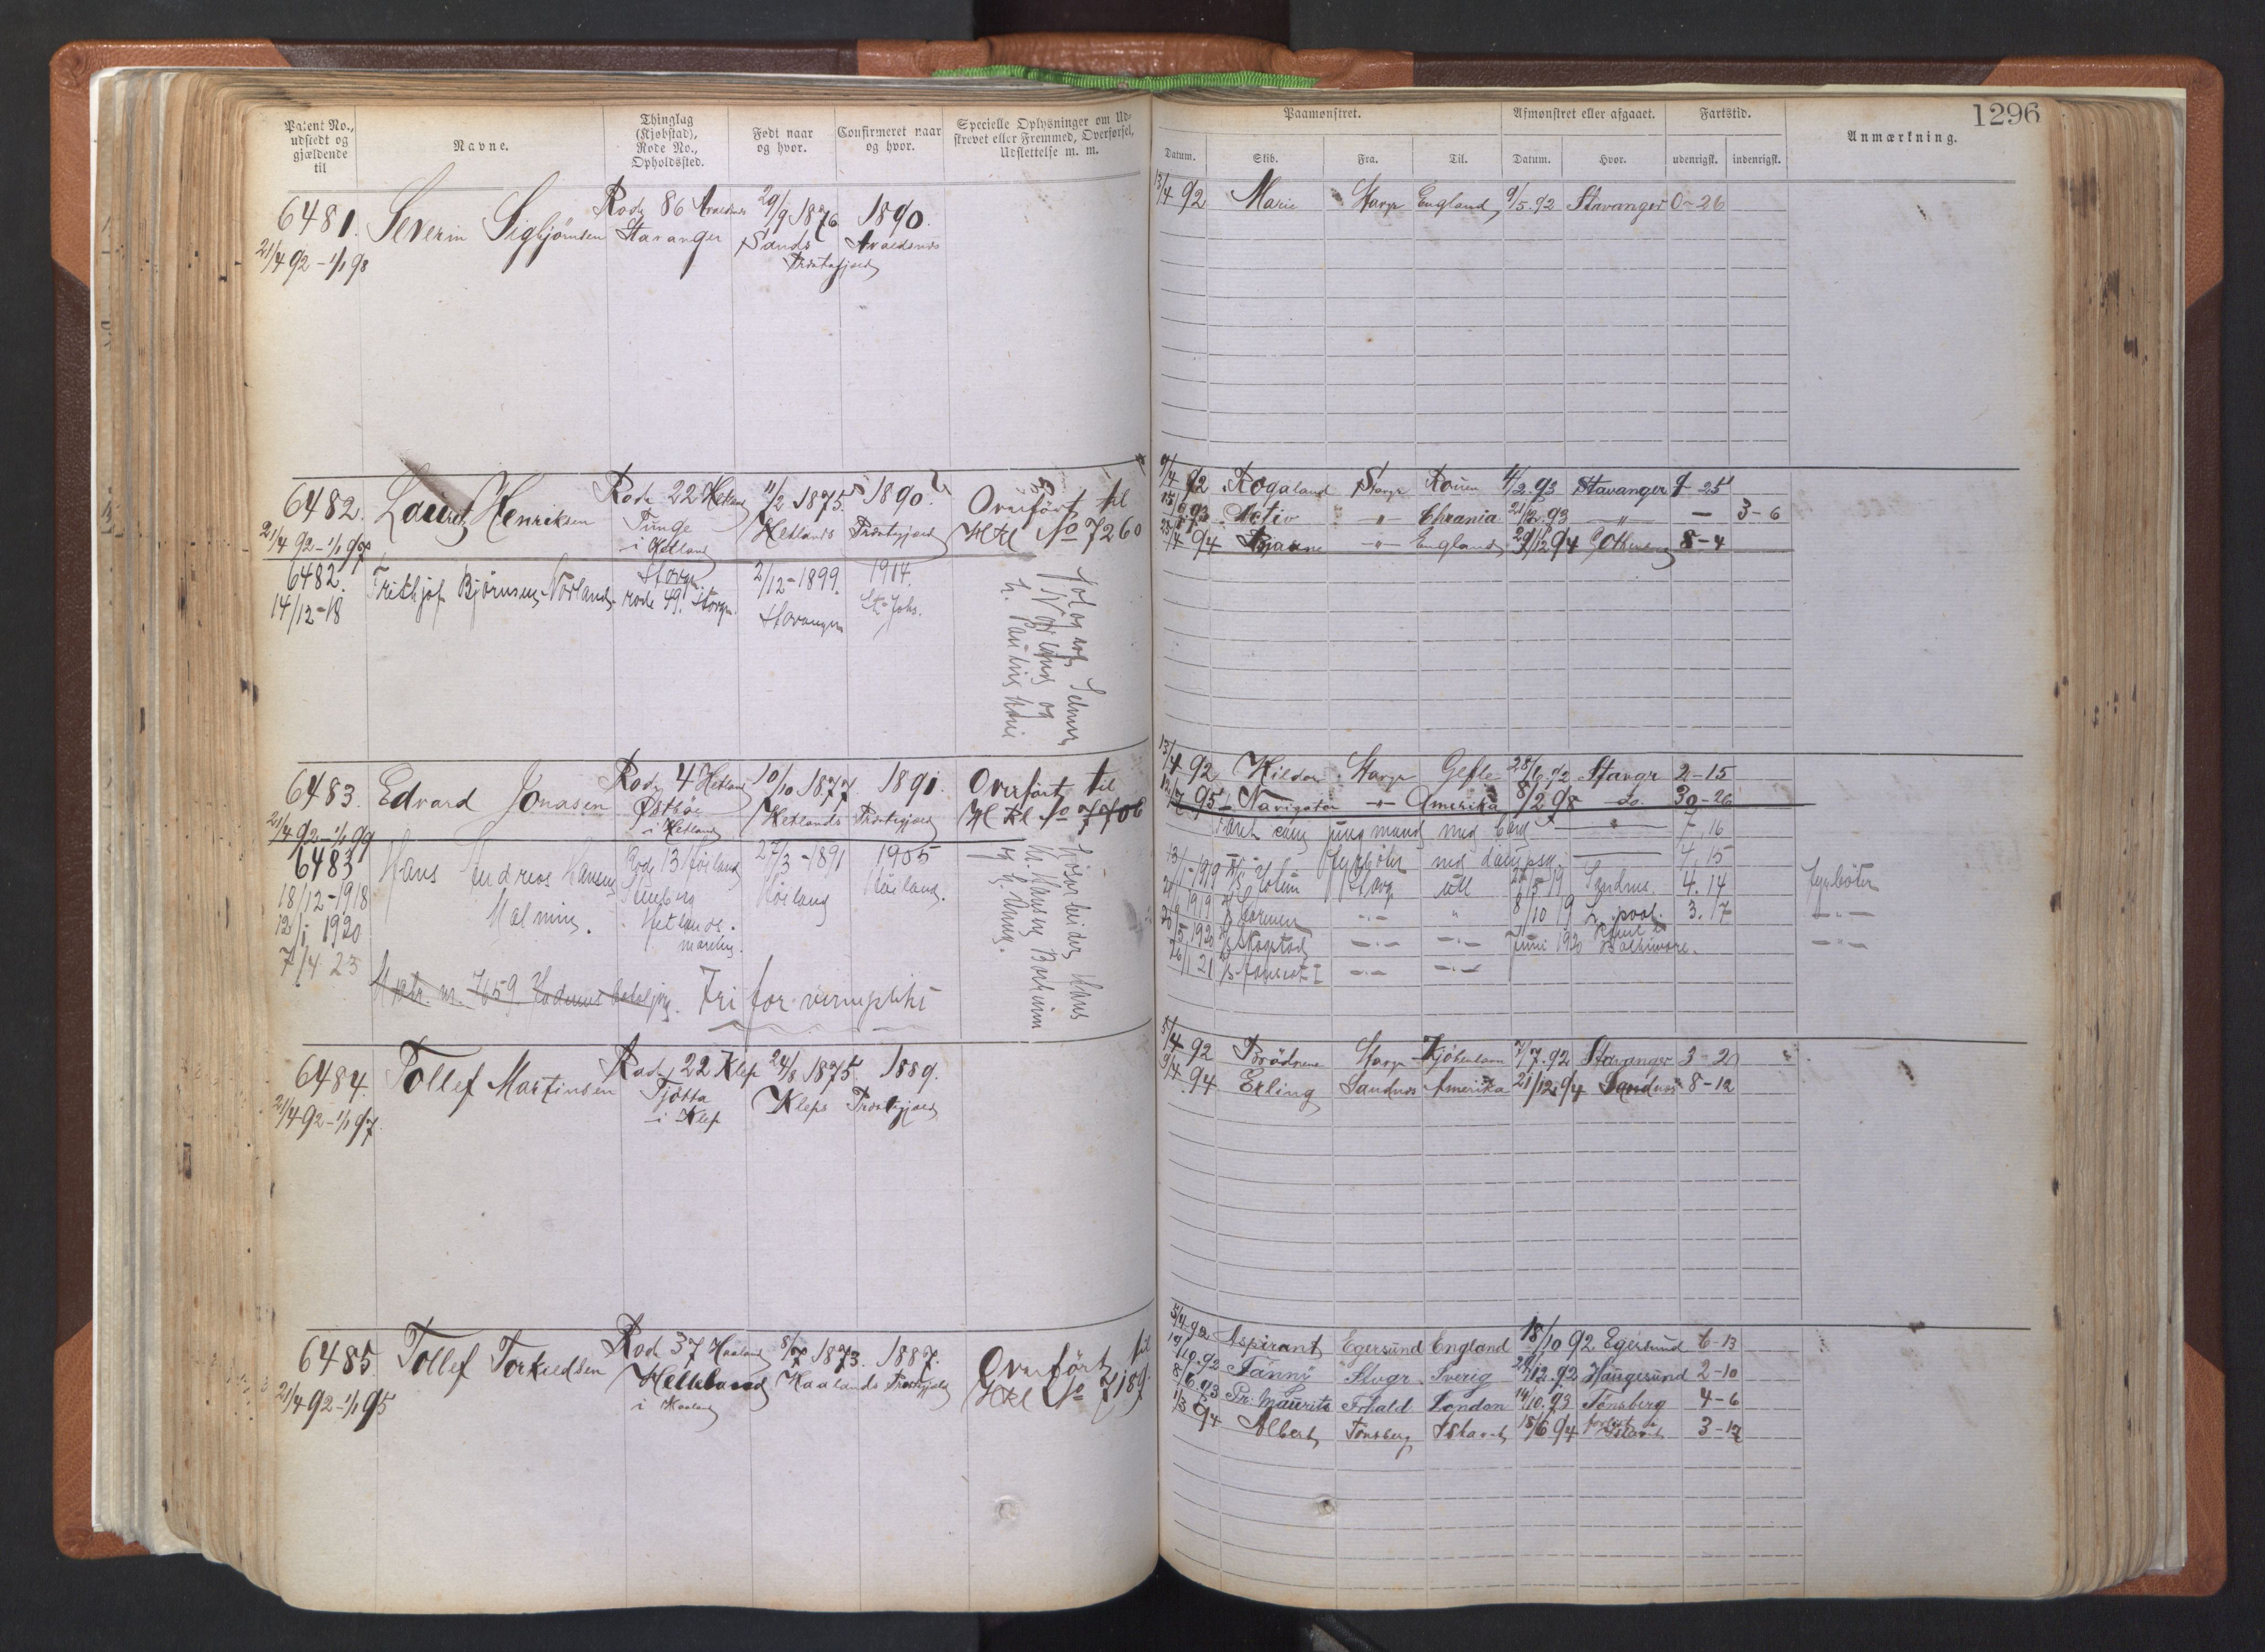 Patent No., udstedt og gjældende til
Navne.
Thinglag (Kjøbstad), Rode No., Opholdssted.
Født naar og hvor.
Confirmeret naar og hvor.
Specielle Oplysninger om Udskrevet eller Fremmed, Overførsel, Udslettelse m. m.
6481. Severin Sigbjörnsen Rode 86 Avaldsnes 29/9 1876 1890.
21/4 92 - 1/1 98 Stavanger Sands Avaldsnes
Præstegjæld
6482. Lauritz Henriksen Rode 22 Hetland 11/2 1875 1890. Overført til
21/4 92 - 1/1 97 Tunge i Hetland Hetlands Præstegjæld HKl No 7260
6482. Frithjof Bjørnsen Norland. Stavgr. 2/12 - 1899. 1914.
14/12 - 18 rode 49. Storgt. Stavanger St. Johs.
6483. Edvard Jonasen Rode 4 Hetland 10/10 1877. 1891. Overført til
21/4 92 - 1/1 99 Østbøe i Hetland Hetlands Præstegjæld HKl No 7706
6483 Hans Andreas Hansen Rode 13 Høiland 27/3 - 1891 1905
18/12 - 1918 Malmin. Høiland Høiland.
12/1 1920 Hetlands-marken.
7/4 23
Fri for verneplikt
6484. Tollef Martinsen Rode 22 Klep 24/8 1875. 1889.
21/4 92 - 1/1 97 Tjøtta i Klep Kleps Præstegjæld
6485 Tollef Torkildsen Rode 37 Haaland 8/7 1873. 1887. Overført til
21/4 92 - 1/1 95 i Haaland Haalands Præstegjæld HKl No 7189
1296
Paamønstret. Afmønstret eller afgaaet. Fartstid. Anmærkning.
Datum. Skib. Fra. Til. Datum. Hvor. udenrigsk. indenrigsk.
13/4 92 Marie Stavgr England 9/5 92 Stavanger 0-26
9/4 92 Rogaland Stavgr Rouen 4/2 93 Stavanger 9 25
15/6 93 Activ " Chrania 21/12 93 " - 3-6
25/4 94 Bjarne " England 29/12 94 8-4
13/4 92 Hilda Stavgr Gefle 28/6 92 Stavgr 2-15
12/7 95 Navigator " Amerika 8/2 98 do. 30-26
Faret som jungmand med bark " 7, 16
" fyrbøter med dampsk. 4, 15
13/1-1919 Stavg utl 19 Sandnes. 4.14 fyrbøter
8/10 19 L.pool. 3.17 -"-
1920 Skogstad -"- -"- Juni 1920 Baltimore. -"-
-"- -"-
5/4 92 Brödrene Stavgr Kjøbenhavn 7/7 92 Stavanger 3-20
9/4 94 Erling Sandnes Amerika 21/12 94 Sandnes 8-12
5/4 92 Aspirant Egersund England 18/10 92 Egersund 6-13
19/10 92 Fanny Stvgr. Sverig 29/12 92 Haugesund 2-10
8/6 93 Pr. Maurits Frhald London 14/10 93 Tönsberg 4-6
1/3 94 Albert Tönsberg Ishavet 18/6 94 forlist i Ishavet 3-17